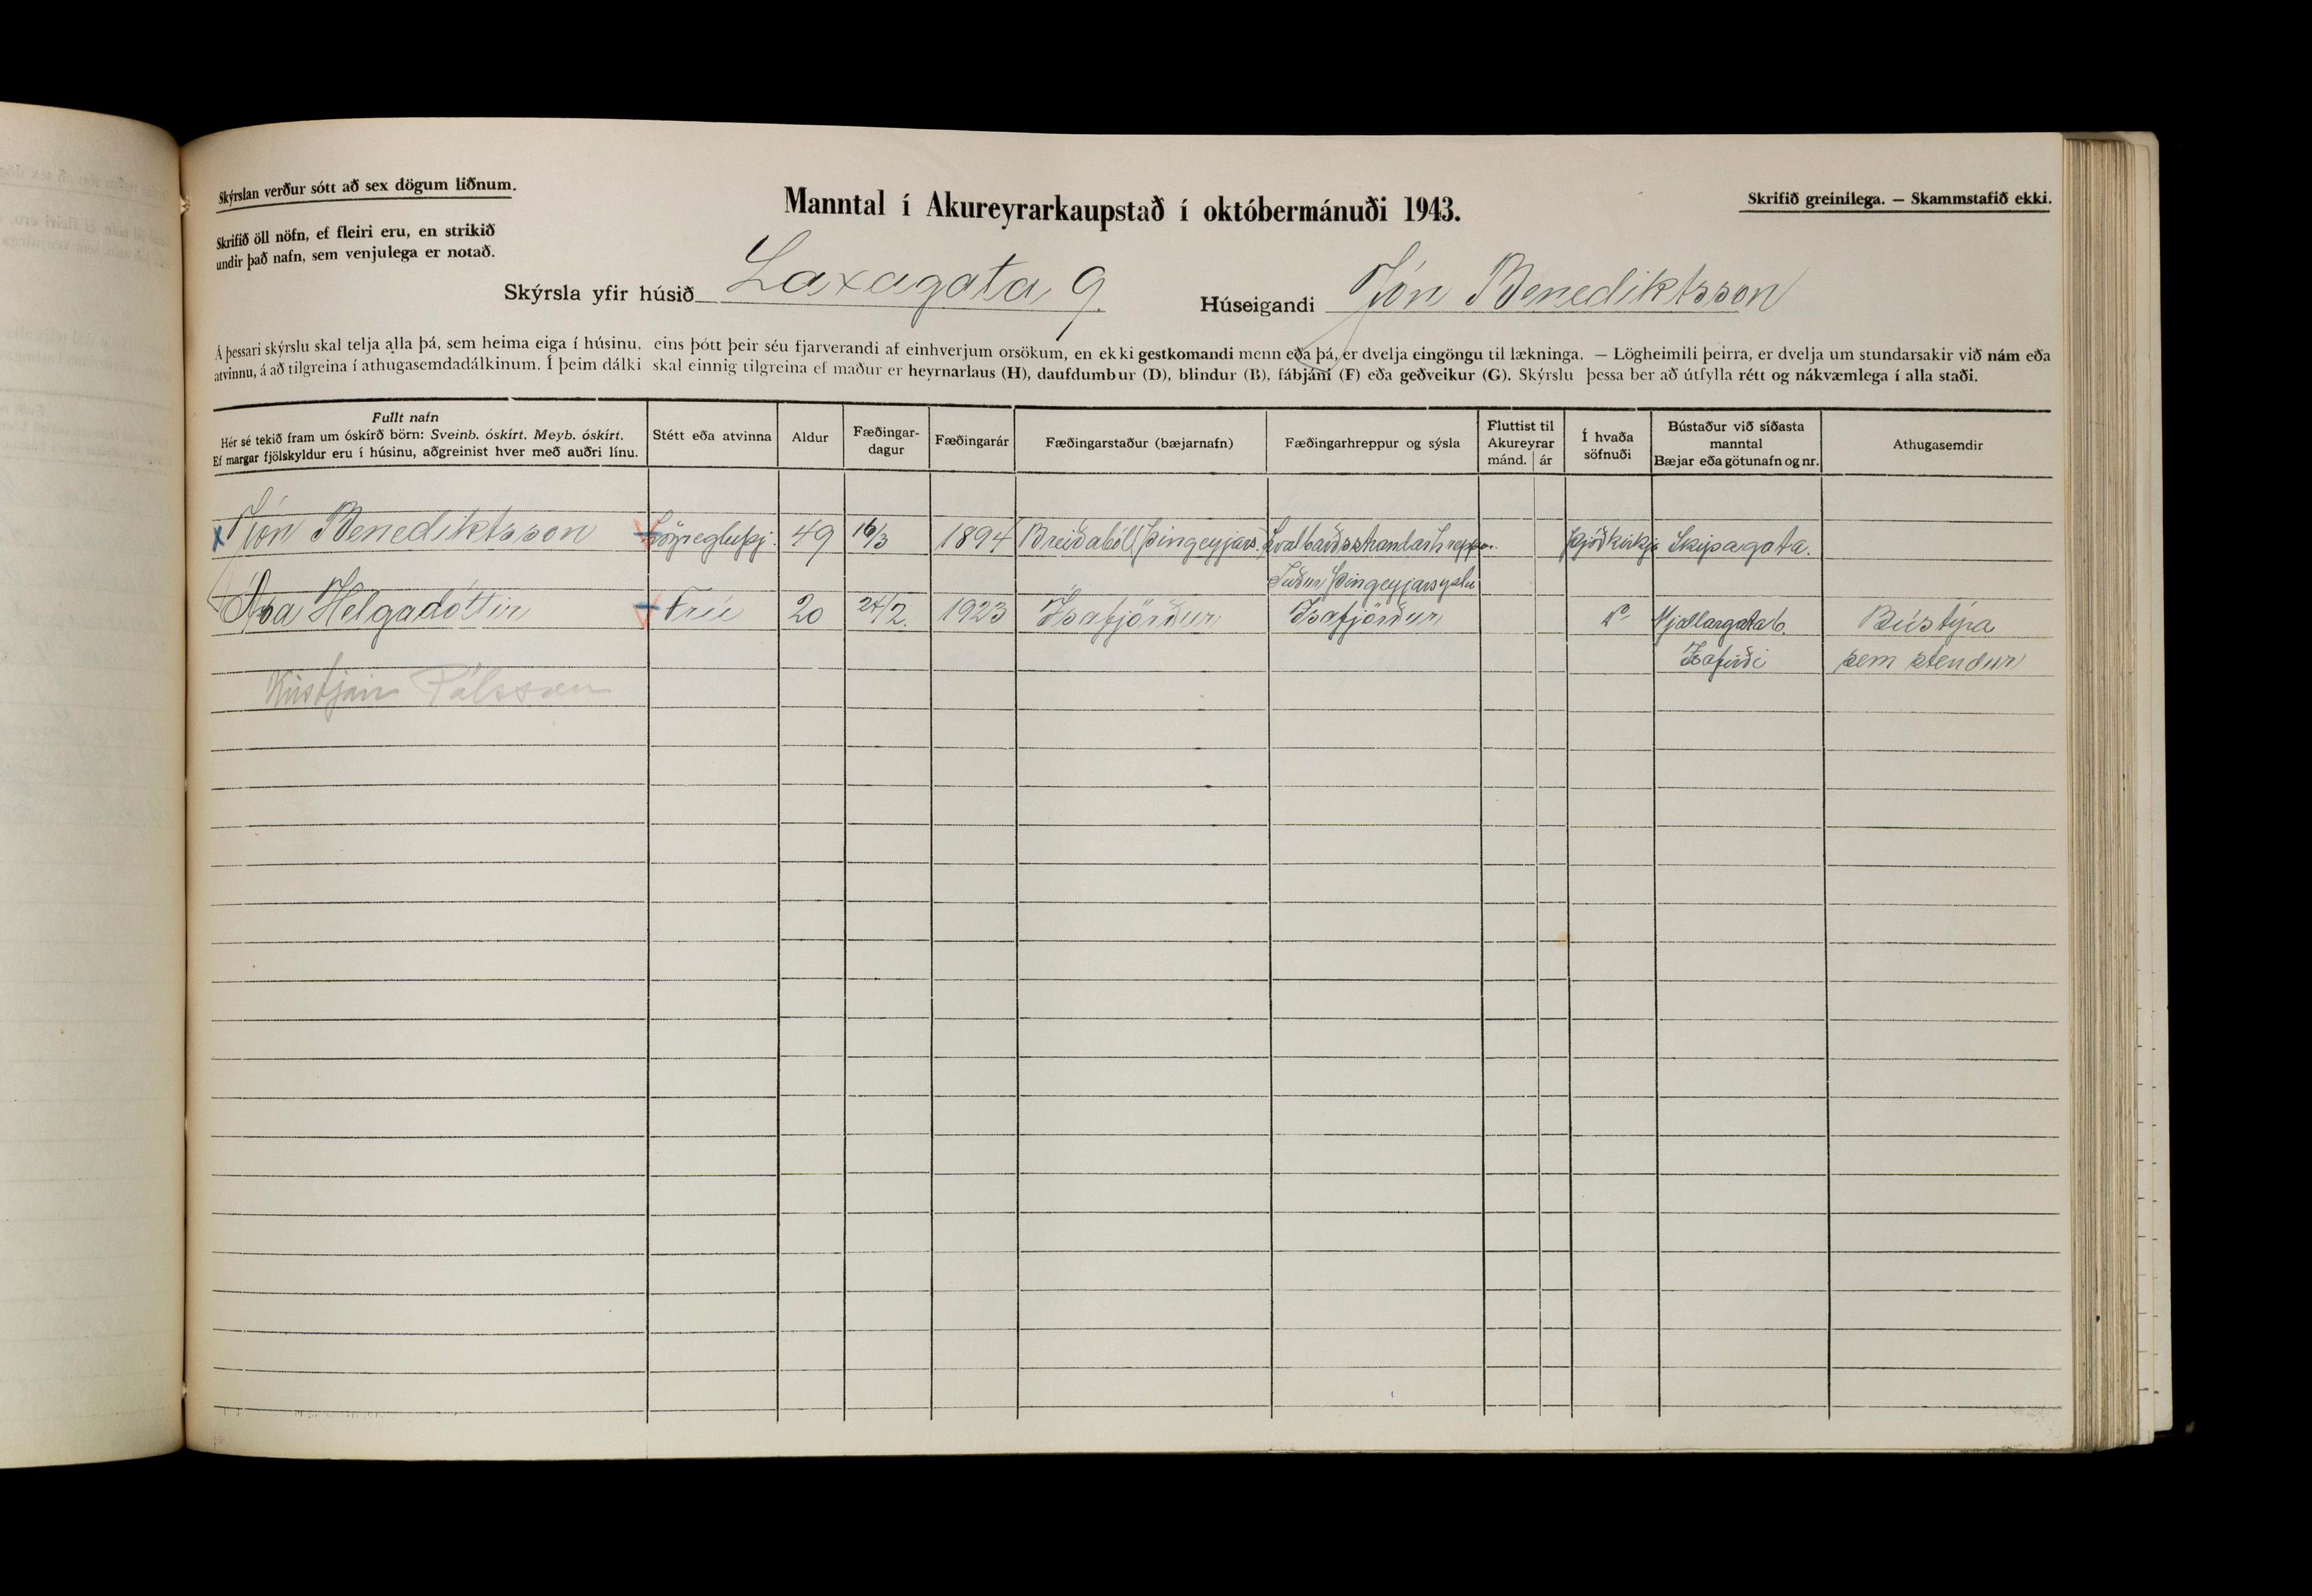 Skýrslan verður sótt að sex dögum liðnum.
Manntal í Akureyrarkaupstað í októbermánuði 1943.
Skrifið greinilega. — Skammstafið ekki.
Skrifið öll nöfn, ef fleiri eru, en strikið
undir það nafn, sem venjulega er notað.
Skýrsla yfir húsið Laxagata 9. Húseigandi Jón Benediktsson
Á þessari skýrslu skal telja alla þá, sem heima eiga í húsinu, eins þótt þeir séu fjarverandi af einhverjum orsökum, en ekki gestkomandi menn eða þá, er dvelja eingöngu til lækninga. — Lögheimili þeirra, er dvelja um stundarsakir við nám eða
atvinnu, á að tilgreina í athugasemdadálkinum. Í þeim dálki skal einnig tilgreina ef maður er heyrnarlaus (H), daufdumbur (D), blindur (B), fábjáni (F) eða geðveikur (G). Skýrslu þessa ber að útfylla rétt og nákvæmlega í alla staði.
Fullt nafn
Hér sé tekið fram um óskírð börn: Sveinb. óskírt. Meyb. óskírt.
Ef margar fjölskyldur eru í húsinu, aðgreinist hver með auðri línu.
Stétt eða atvinna
Aldur
Fæðingar-
dagur
Fæðingarár
Fæðingarstaður (bæjarnafn)
Fæðingarhreppur og sýsla
Fluttist til
Akureyrar
mánd. ár
Í hvaða
söfnuði
Bústaður við síðasta
manntal
Bæjar eða götunafn og nr.
Athugasemdir
x Jón Benediktsson Lögregluþj. 49 16/3 1894 Breiðaból Þingeyjars. Svalbarðsstrandarhreppur. Þjóðkirkj Skipagata.
Suður Þingeyjarsyslu
Ása Helgadóttir Frú 20 24/2. 1923 Ísafjörður Ísafjörður Mjallargata 6. Bústýra
Ísafirði sem stendur
Kristján Pálsson